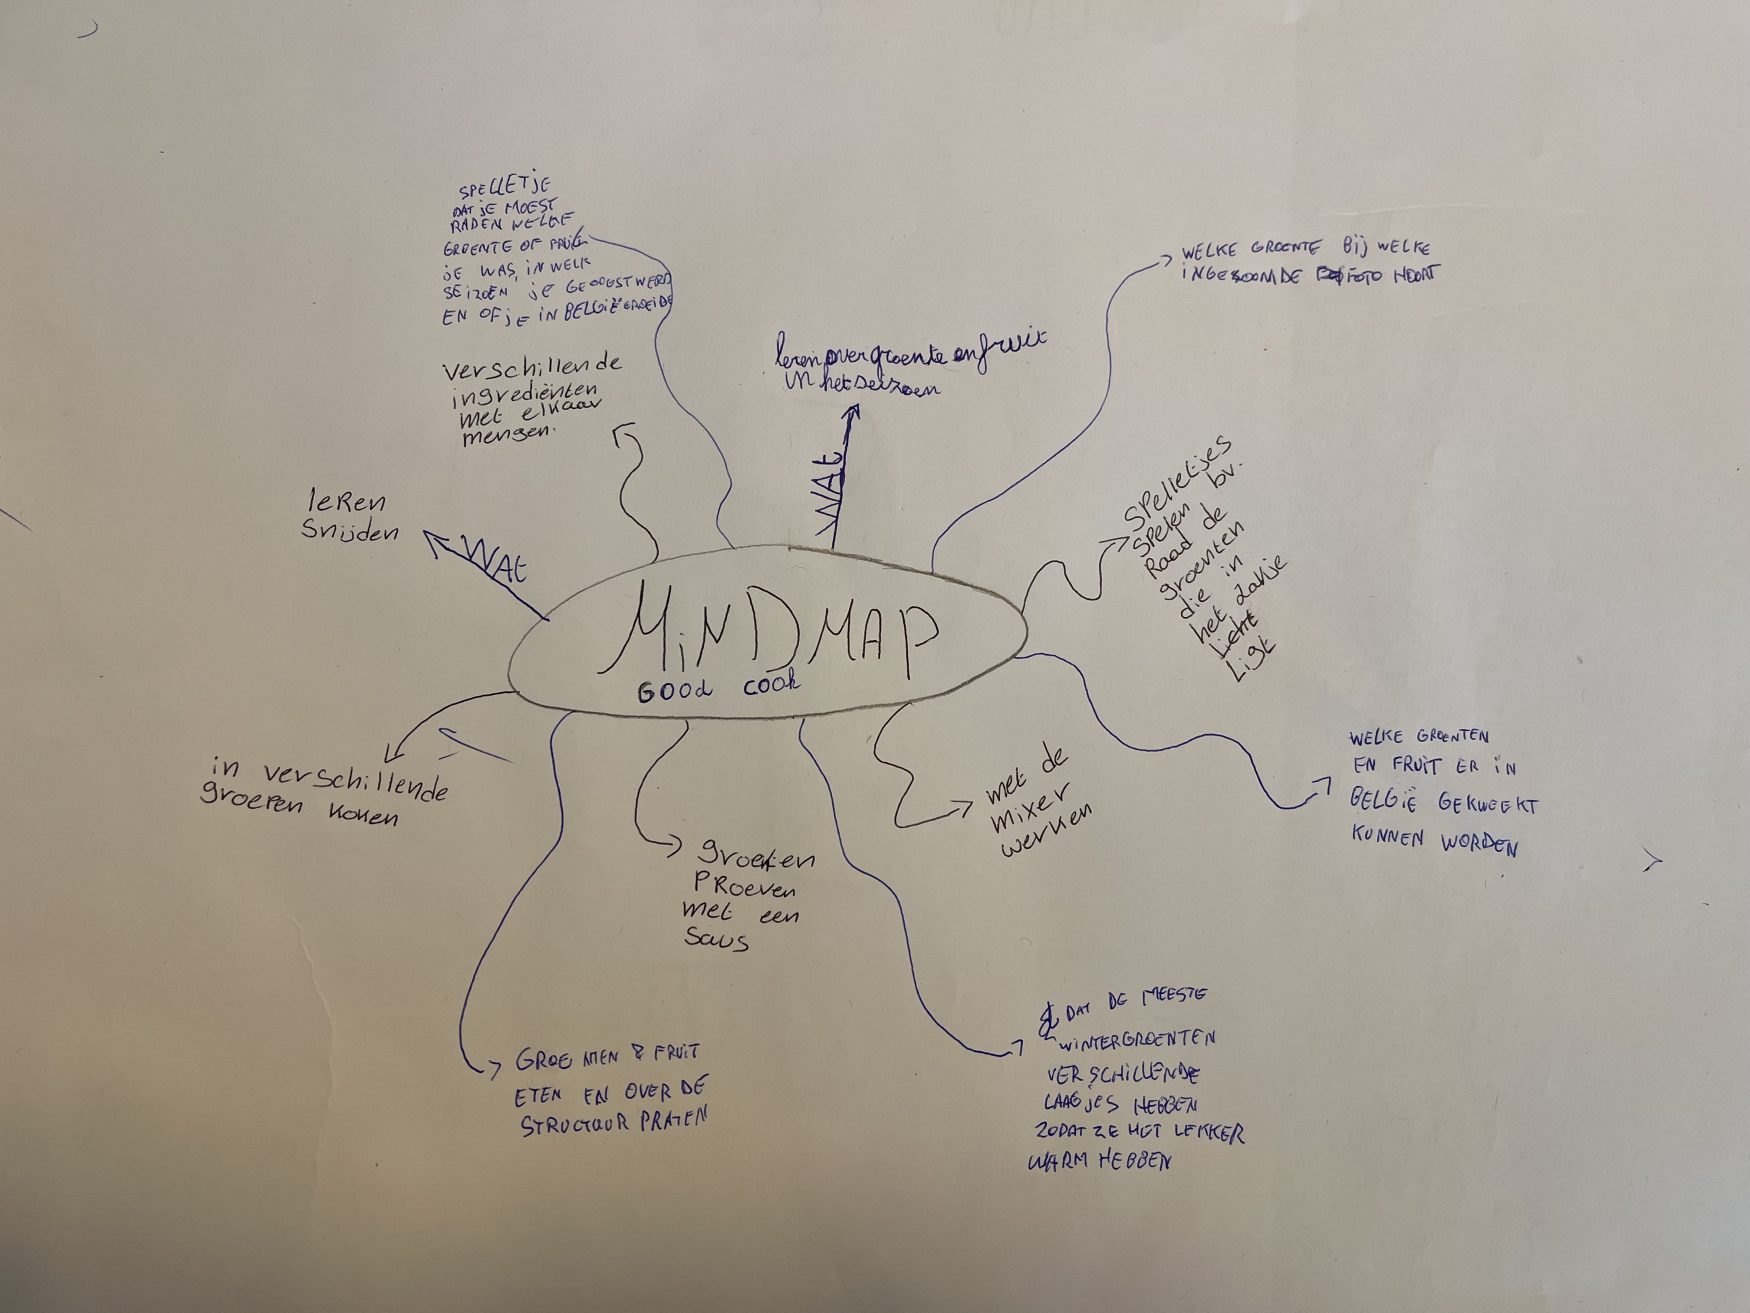 SPELLETJE
DAT JE MOEST
RADEN WELKE
GROENTE OF FRUIT
JE WAS, IN WELK
SEIZOEN JE GEOOGST WERD
EN OF JE IN BELGIË GROEIDE
verschillende
ingrediënten
met elkaar
mengen.
leren over groente en fruit
in het seizoen
WAt
WELKE GROENTE BIJ WELKE
INGEZOOMDE FOTO HOORT
leren
snijden
WAt
SPelletjes
spelen bv.
Raad de
groenten
die in
het zakje
Licht
Ligt
MiNDMAP
GOOd cook
in verschillende
groepen koken
groenten
PRoeven
met een
saus
met de
mixer
werken
WELKE GROENTEN
EN FRUIT ER IN
BELGIË GEKWEEKT
KUNNEN WORDEN
GROENTEN & FRUIT
ETEN EN OVER DE
STRUCTUUR PRATEN
DAT DE MEESTE
WINTERGROENTEN
VERSCHILLENDE
LAAGJES HEBBEN
ZODAT ZE HET LEKKER
WARM HEBBEN